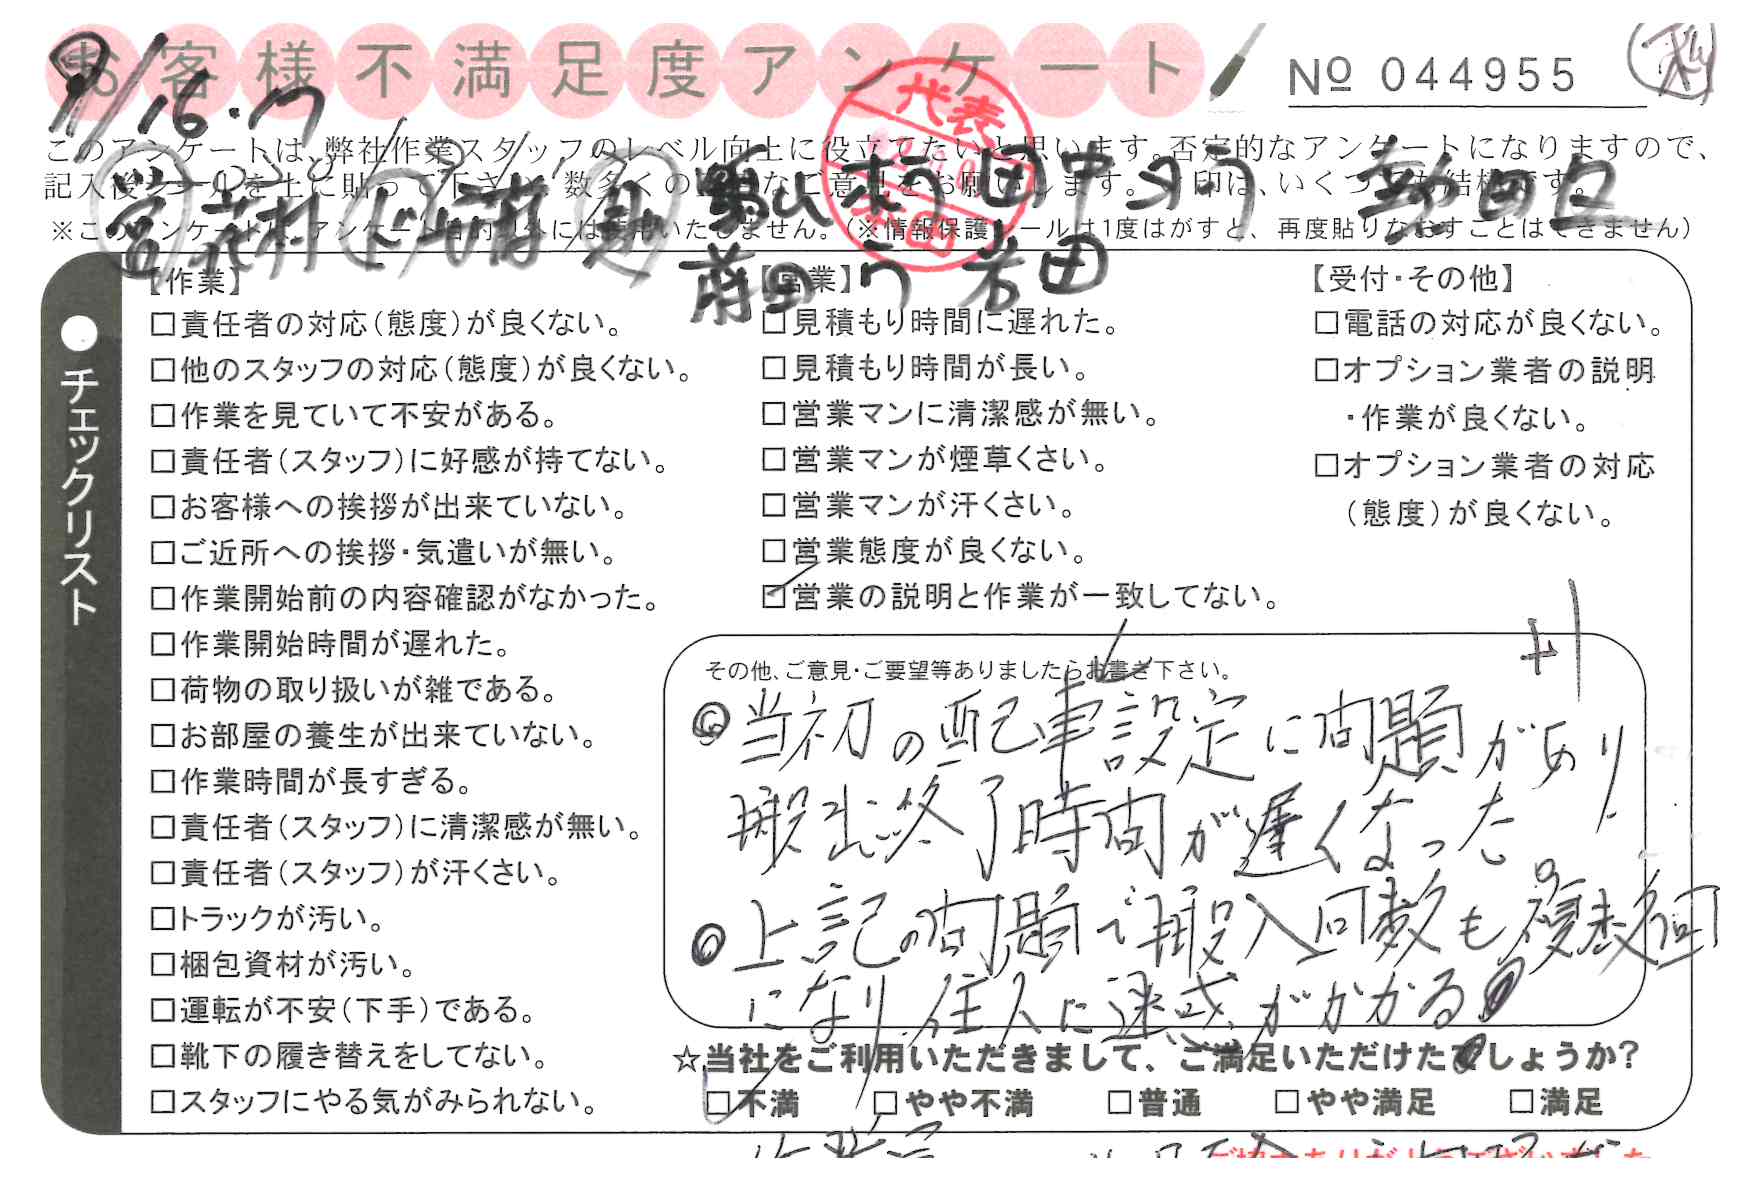 お客様不満足度アンケート
№ 044955
9/16.ワ
このアンケートは、弊社作業スタッフのレベル向上に役立てたいと思います。否定的なアンケートになりますので、
記入後シールを上に貼って下さい。数多くの正直なご意見をお願いします。
※このアンケートは、アンケート目的以外には使用いたしません。(※情報保護シールは1度はがすと、再度貼りなおすことはできません)
代表
前田
岩田
チェックリスト
【作業】
□責任者の対応(態度)が良くない。
□他のスタッフの対応(態度)が良くない。
□作業を見ていて不安がある。
□責任者(スタッフ)に好感が持てない。
□お客様への挨拶が出来ていない。
□ご近所への挨拶・気遣いが無い。
□作業開始前の内容確認がなかった。
□作業開始時間が遅れた。
□荷物の取り扱いが雑である。
□お部屋の養生が出来ていない。
□作業時間が長すぎる。
□責任者(スタッフ)に清潔感が無い。
□責任者(スタッフ)が汗くさい。
□トラックが汚い。
□梱包資材が汚い。
□運転が不安(下手)である。
□靴下の履き替えをしてない。
□スタッフにやる気がみられない。
【営業】
□見積もり時間に遅れた。
□見積もり時間が長い。
□営業マンに清潔感が無い。
□営業マンが煙草くさい。
□営業マンが汗くさい。
□営業態度が良くない。
☑営業の説明と作業が一致してない。
【受付・その他】
□電話の対応が良くない。
□オプション業者の説明
・作業が良くない。
□オプション業者の対応
(態度)が良くない。
+1
その他、ご意見・ご要望等ありましたらお書き下さい。
◎当初の配車設定に問題があり
搬出終了時間が遅くなった
◎上記の問題で搬入回数も複数回
になり、住人に迷惑がかかる
☆当社をご利用いただきまして、ご満足いただけたでしょうか?
☑不満 □やや不満 □普通 □やや満足 □満足